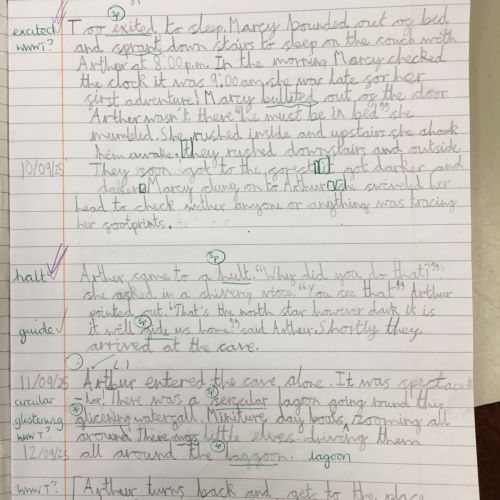 excited Too exited to sleep. Marcy bounded out of bed
WWWT? and sprant down stairs to sleep on the couch with
Arther at 8:00pm. In the morning Marcy checked
the clock it was 9:00am she was late for her
first adventure! Marcy bullited out of the door
Arther wasn't there "he must be in bed" she
mumbled. She rushed inside and upstairs she shook
him awake. They rushed downstairs and outside.
10/09/25 They soon got to the forest it got darker and
darker. Marcy clung on to Arthur she swiveled her
head to check wither anyone or angthing was tracing
her footprints.
sp
halt Arther came to a hult. "Why did you do that?"
she asked in a shivery voice. "You see that" Arthur
pointed out. "That's the north star however dark it is
guide it will gide us home" said Arther. Shortly they
arrived at the cave.
11/09/25 Arthur entered the cave alone. It was spectacu
circular -lar. There was a sercular lagoon going round this
glistening glicening waterfall. Miniture day boats, zooming all
WWWT? around. There was little elves driving them
12/09/25 all around the laggoon. lagoon
WWWT? Arther turns back and get to the place